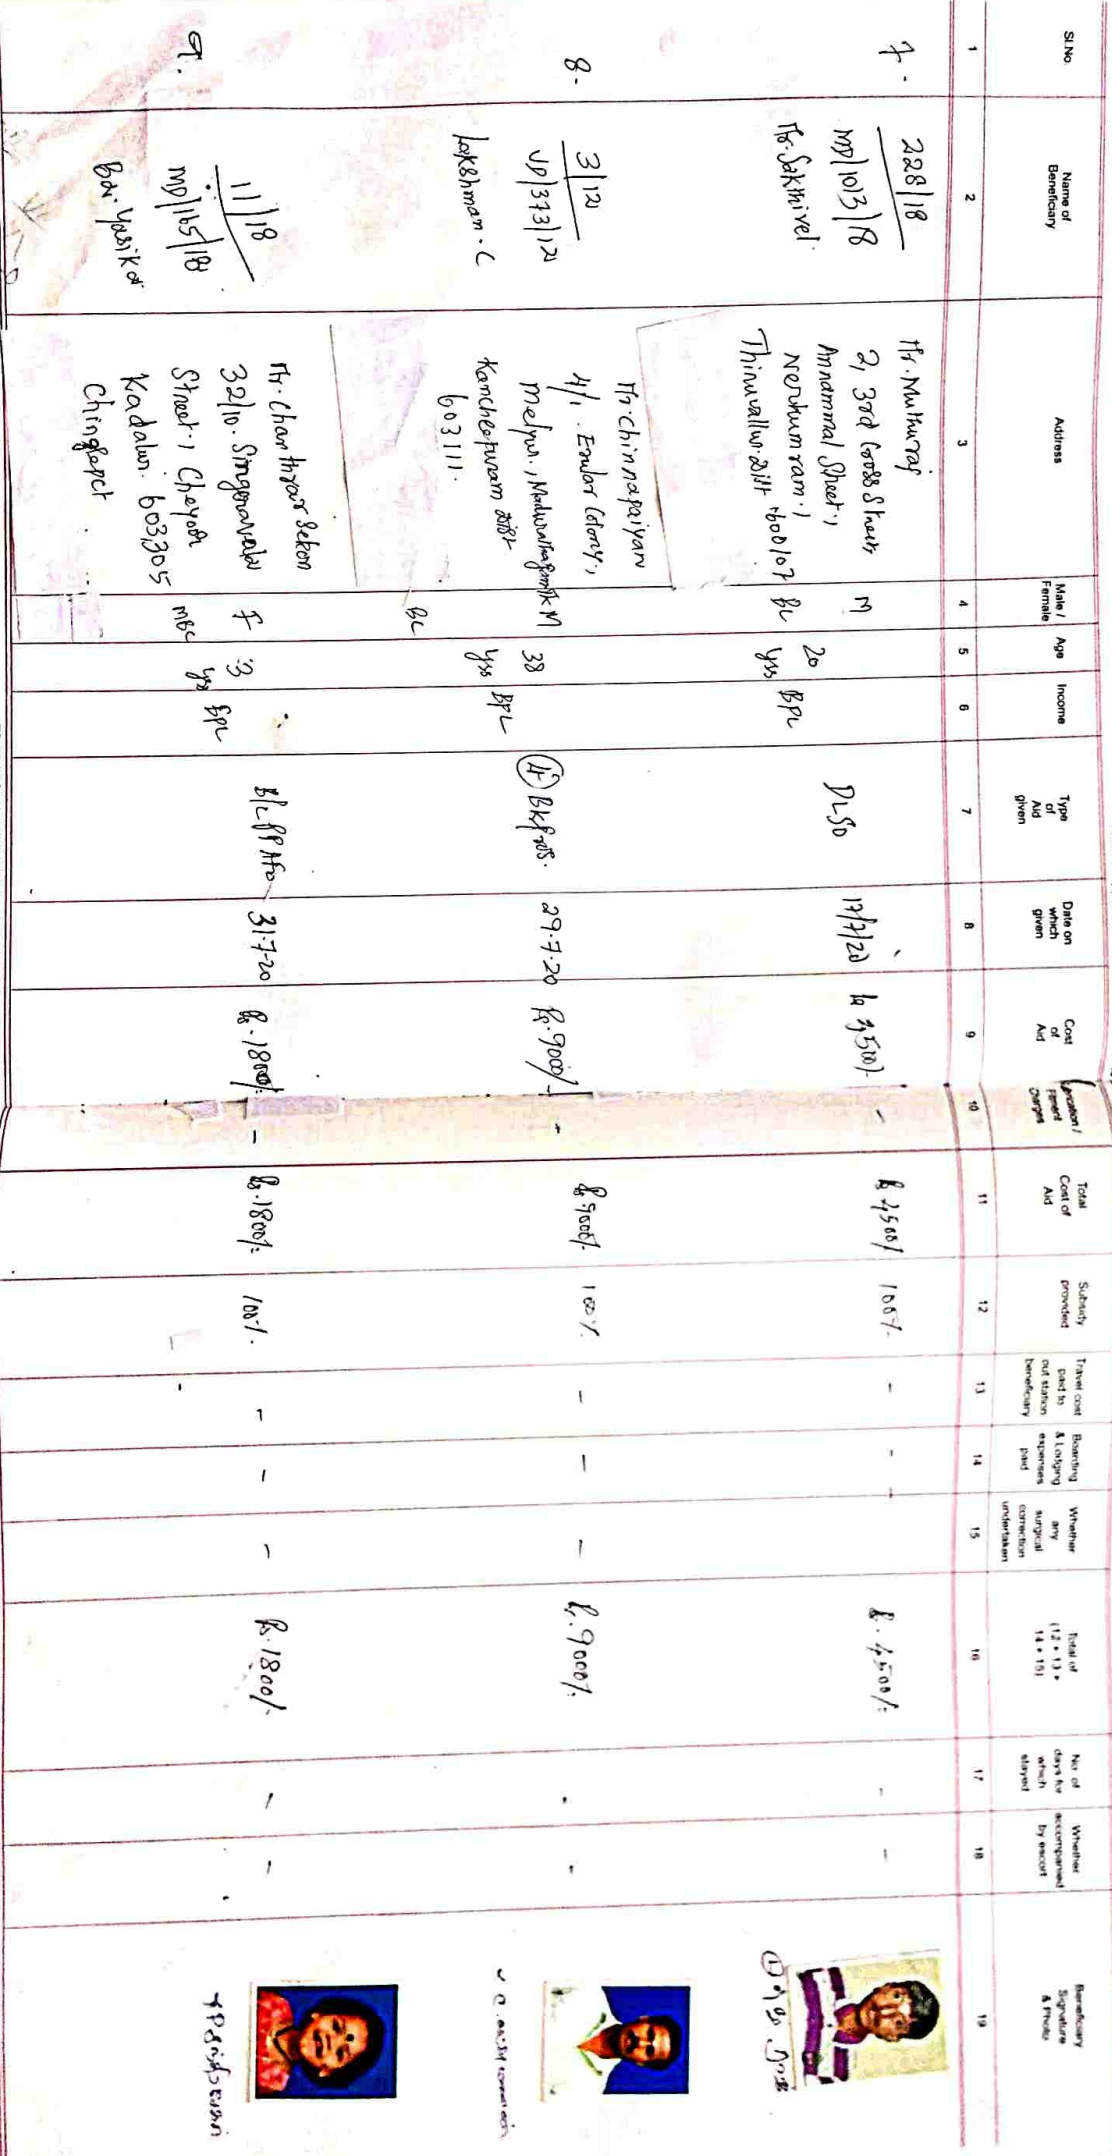 Sl.No.
Name of
Beneficiary
Address
Male /
Female
Age
Income
Type
of
Aid
given
Date on
which
given
Cost
of
Aid
Fitment
Charges
Total
Cost of
Aid
Subsidy
provided
Travel cost
paid to
out station
beneficiary
Boarding
& Lodging
expenses
paid
Whether
any
surgical
correction
undertaken
Total of
(12 + 13 +
14 + 15)
No. of
days for
which
stayed
Whether
accompanied
by escort
Beneficiary
Signature
& Photo
1
2
3
4
5
6
7
8
9
10
11
12
13
14
15
16
17
18
19
7.
228/18
MD/1013/18
Mr. Sakthivel.
Mr. Muthuraj
2, 3rd Cross Street,
Annammal Street,
Nerkumram,
Thiruvallur. Dist 600107
M
BC
20
yrs
BPL
DLSO
17/7/20
-
100%
-
-
-
Rs. 4500/-
-
-
8-
3/12
VD/373/12
Lakshman. C
Mr. Chinnapaiyan
4/1, Endar Colony,
Melpur, Madurathagam TK
Kancheepuram Dist
603111.
M
BC
38
yrs
BPL
(4) BKPros.
29.7.20
Rs. 9000/-
-
Rs. 9000/-
100%
-
-
-
Rs. 9000/-
-
-
9.
11/18
MD/165/18
Bby. Yasika
Mr. Chanthrar Sekon
32/10. Singaravelar
Street, Cheyoor
Kadalur. 603305
Chinglepet
F
MBC
3
yrs
BPL
B/L PP AFO
31-7-20
Rs. 1800/-
-
Rs. 1800/-
100%.
-
-
-
Rs. 1800/-
-
-